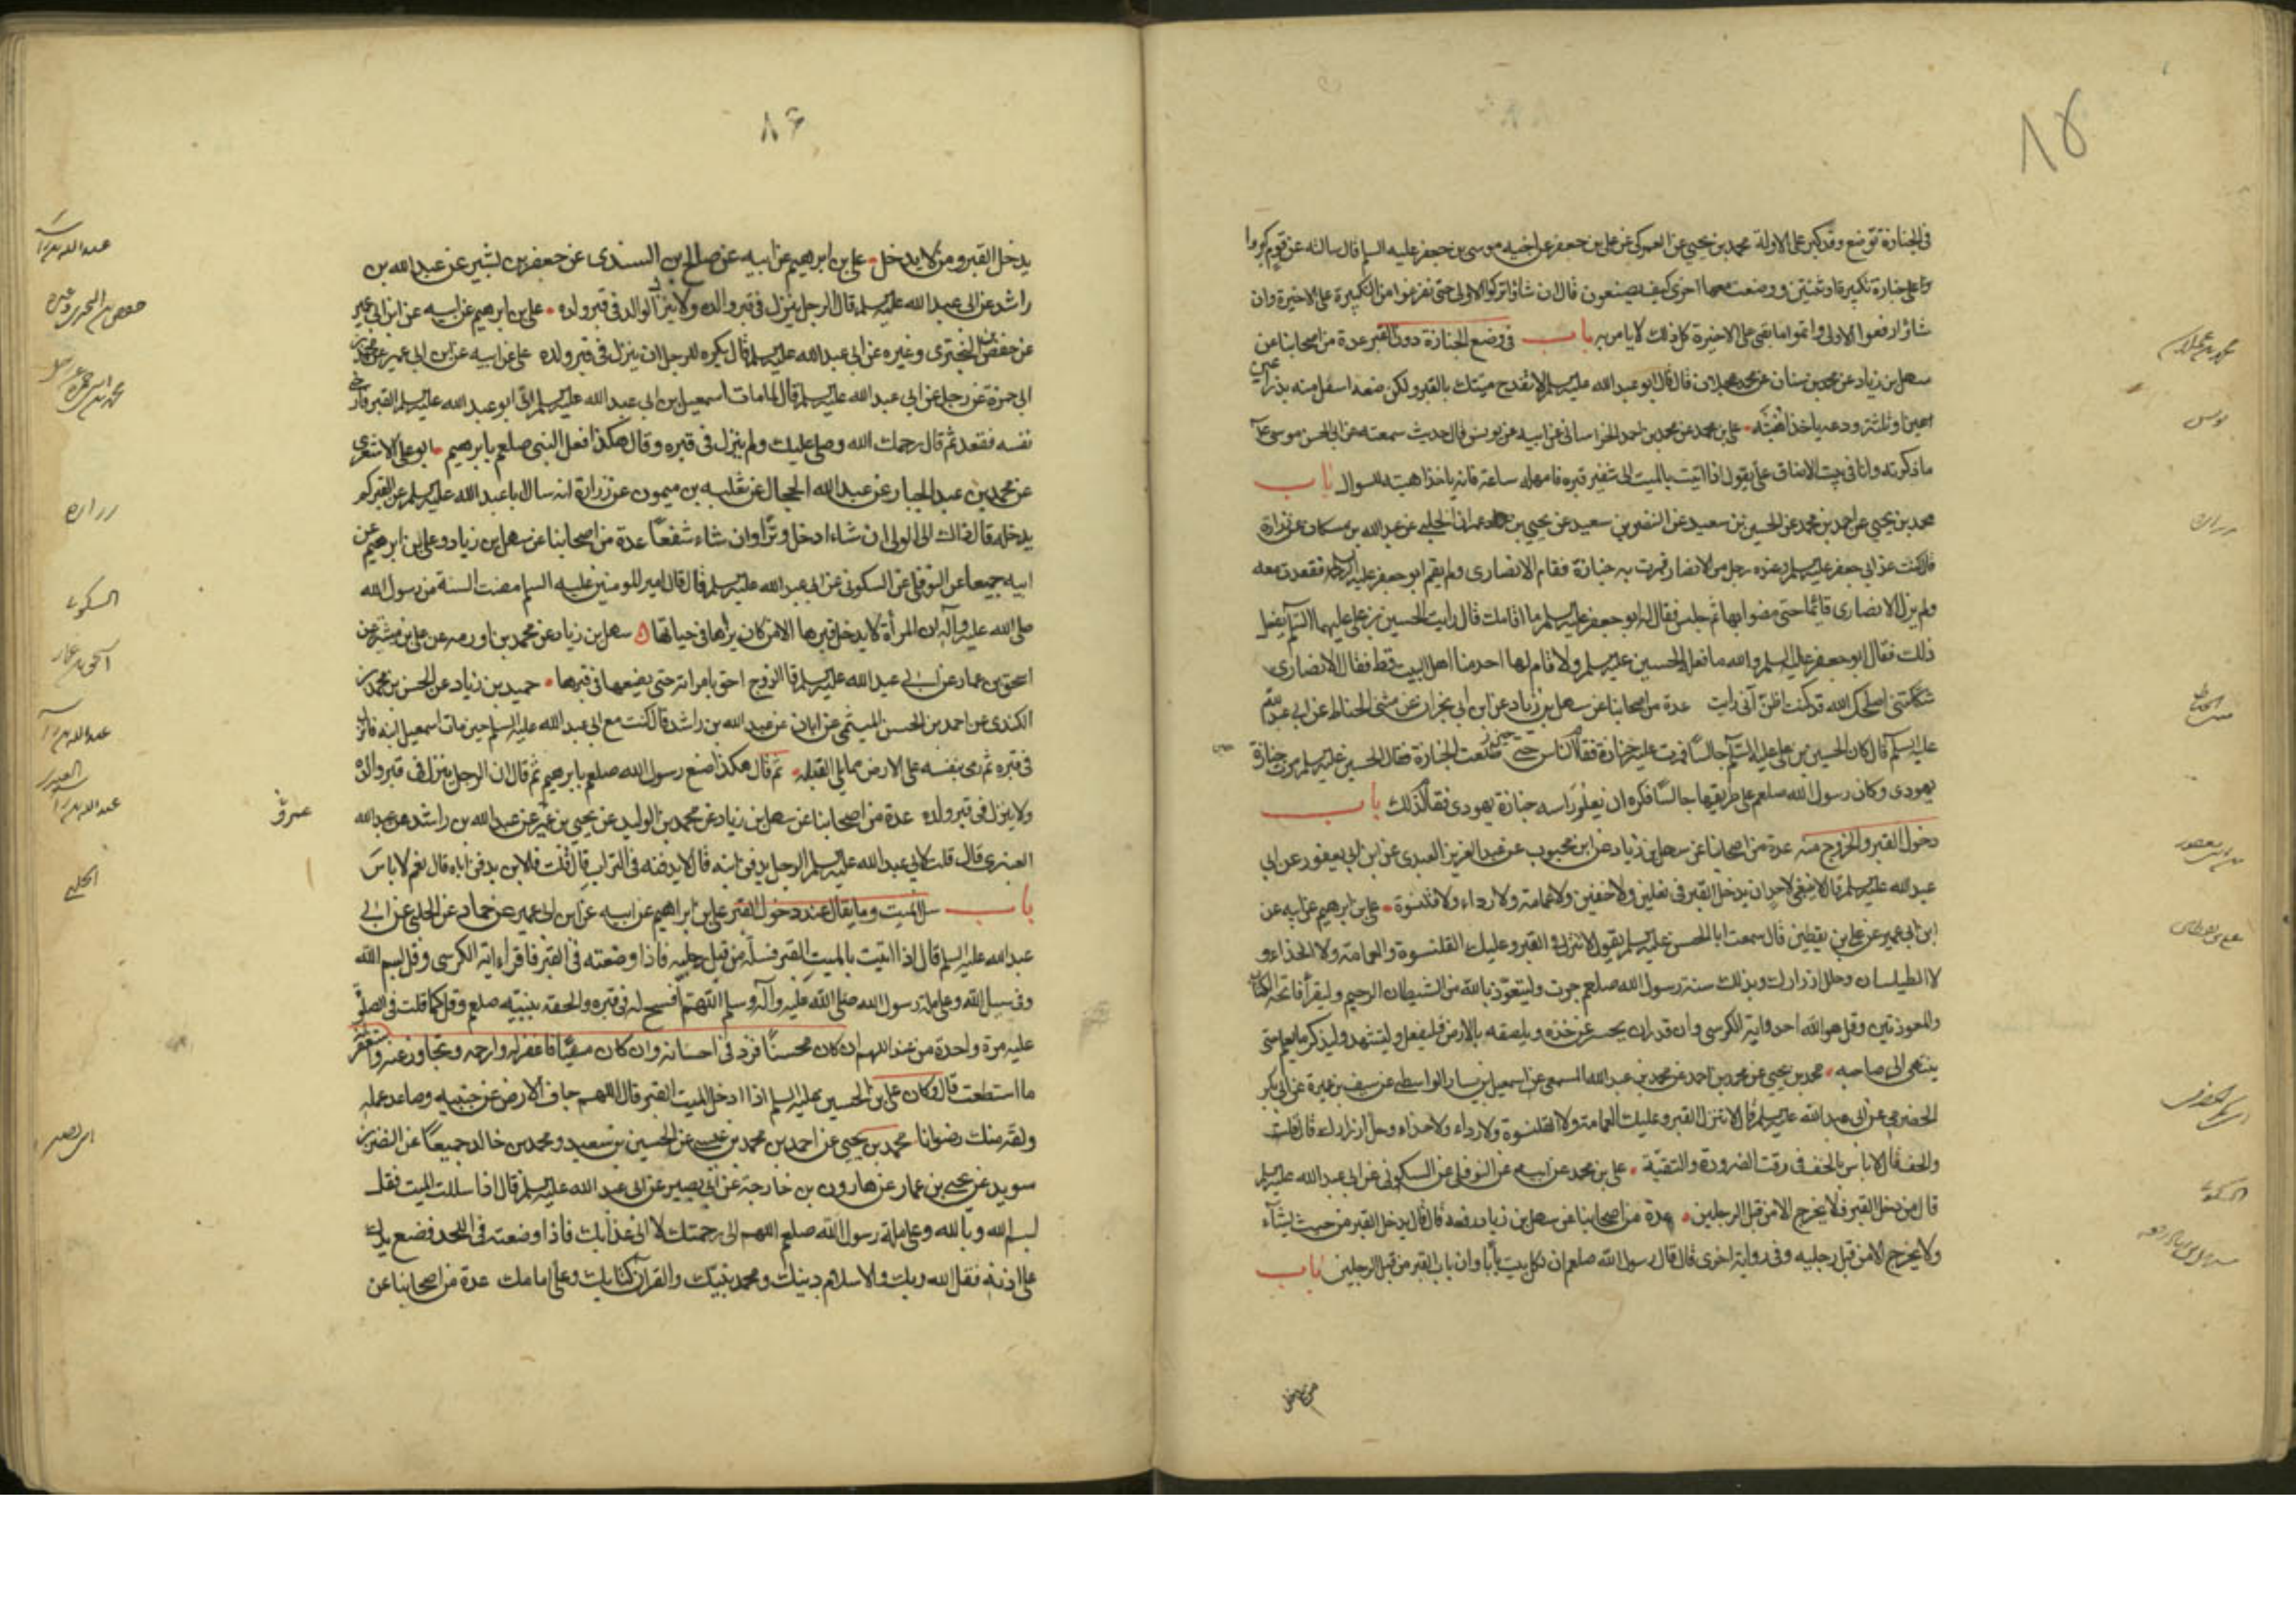 ٨٥
في الجنازة توضع وقد كبر على الاولة محمد بن يحيى عن العمركي عن علي بن جعفر عن اخيه موسى بن جعفر عليه السلم قال سالته عن قوم كبروا
على جنازة تكبيرة او ثنتين ووضعت معها اخرى كيف يصنعون قال ان شاؤا تركوا الاولى حتى يفرغوا من التكبيرة على الاخيرة وان
شاؤا رفعوا الاولى واتموا ما بقي على الاخيرة كل ذلك لا باس به باب في وضع الجنازة دون القبر عدة من اصحابنا عن
سهل بن زياد عن محمد بن سنان عن محمد بن عجلان قال قال ابو عبد الله عليه السلم لا تفدح ميتك بالقبر ولكن ضعه اسفل منه بذراعين
او ثلثة ودعه ياخذ اهبته علي بن محمد عن محمد بن احمد الخراساني عن ابيه عن يونس قال حديث سمعته عن ابي الحسن موسى
ما ذكرته وانا في بيت الا ضاق علي يقول اذا اتيت بالميت الى شفير قبره فامهله ساعة فانه ياخذ اهبته للسوال باب
محمد بن يحيى عن احمد بن محمد عن الحسين بن سعيد عن النضر بن سعيد عن يحيى بن عمران الحلبي عن عبد الله بن مسكان عن زرارة
قال كنت عند ابي جعفر عليه السلم وعنده رجل من الانصار فمرت به جنازة فقام الانصاري ولم يقم ابو جعفر عليه السلم فقعدت معه
ولم يزل الانصاري قائما حتى مضوا بها ثم جلس فقال له ابو جعفر عليه السلم ما اقامك قال رايت الحسين بن علي عليهما السلم يفعل
ذلك فقال ابو جعفر عليه السلم والله ما فعله الحسين عليه السلم ولا قام لها احد منا اهل البيت قط فقال الانصاري
شككتني اصلحك الله قد كنت اظن اني رايت عدة من اصحابنا عن سهل بن زياد عن ابن ابي نجران عن مثنى الحناط عن ابي عبد الله
عليه السلم قال كان الحسين بن علي عليه السلم جالسا فمرت عليه جنازة فقام الناس حين طلعت الجنازة فقال الحسين عليه السلم مرت جنازة
يهودي وكان رسول الله صلعم على طريقها جالسا فكره ان تعلو راسه جنازة يهودي فقام لذلك باب
دخول القبر والخروج منه عدة من اصحابنا عن سهل بن زياد عن ابن محبوب عن عبد العزيز العبدي عن ابن ابي يعفور عن ابي
عبد الله عليه السلم قال لا ينبغي لاحد ان يدخل القبر في نعلين ولا خفين ولا عمامة ولا رداء ولا قلنسوة علي بن ابرهيم عن ابيه عن
ابن ابي عمير عن علي بن يقطين قال سمعت ابا الحسن عليه السلم يقول لا تنزل في القبر وعليك القلنسوة والعمامة ولا الحذاء و
لا الطيلسان وحلل ازرارك وبذلك سنة رسول الله صلعم جرت وليتعوذ بالله من الشيطان الرجيم وليقرأ فاتحة الكتاب
والمعوذتين وقل هو الله احد واية الكرسي وان قدر ان يحسر عن خده ويلصقه بالارض فليفعل وليتشهد وليذكر ما يعلم حتى
ينتهي الى صاحبه محمد بن يحيى عن محمد بن احمد عن محمد بن عبد الله المسمعي عن اسمعيل بن يسار الواسطي عن سيف بن عميرة عن ابي بكر
الحضرمي عن ابي عبد الله عليه السلم قال لا تنزل القبر وعليك العمامة ولا القلنسوة ولا رداء ولا حذاء وحل ازرارك قال قلت
والخف قال لا باس بالخف في وقت الضرورة والتقية علي بن محمد عن ابيه عن النوفلي عن السكوني عن ابي عبد الله عليه السلم
قال من دخل القبر فلا يخرج الا من قبل الرجلين عدة من اصحابنا عن سهل بن زياد رفعه قال قال يدخل القبر من حيث يشاء
ولا يخرج الا من قبل رجليه وفي رواية اخرى قال قال رسول الله صلعم ان لكل بيت بابا وان باب القبر من قبل الرجلين باب
محمد بن عجلان
يونس
زرارة
السكوني
من يدخل
٨٦
يدخل القبر ومن لا يدخل علي بن ابرهيم عن ابيه عن صالح بن السندي عن جعفر بن بشير عن عبد الله بن
راشد عن ابي عبد الله عليه السلم قال الرجل ينزل في قبر والده ولا ينزل الوالد في قبر ولده علي بن ابرهيم عن ابيه عن ابن ابي عمير
عن حفص بن البختري وغيره عن ابي عبد الله عليه السلم قال يكره للرجل ان ينزل في قبر ولده علي عن ابيه عن ابن ابي عمير عن محمد بن
ابي حمزة عن رجل عن ابي عبد الله عليه السلم قال لما مات اسمعيل بن ابي عبد الله عليه السلم اتى ابو عبد الله عليه السلم القبر فارخى
نفسه فقعد ثم قال رحمك الله وصلى عليك ولم ينزل في قبره وقال هكذا فعل النبي صلعم بابرهيم ابو علي الاشعري
عن محمد بن عبد الجبار عن عبد الله الحجال عن ثعلبه بن ميمون عن زرارة انه سال ابا عبد الله عليه السلم عن القبر كم
يدخله قال ذاك الى الولي ان شاء ادخل وترا وان شاء شفعا عدة من اصحابنا عن سهل بن زياد وعلي بن ابرهيم عن
ابيه جميعا عن النوفلي عن السكوني عن ابي عبد الله عليه السلم قال قال امير المومنين عليه السلم مضت السنة من رسول الله
صلى الله عليه وآله ان المرأة لا يدخل قبرها الا من كان يراها في حياتها سهل بن زياد عن محمد بن اورمه عن علي بن ميسر عن
اسحق بن عمار عن ابي عبد الله عليه السلم قال الزوج احق بامراته حتى يضعها في قبرها حميد بن زياد عن الحسن بن محمد بن
الكندي عن احمد بن الحسن الميثمي عن ابان عن عبد الله بن راشد قال كنت مع ابي عبد الله عليه السلم حين مات اسمعيل ابنه فانزل
في قبره ثم رمى بنفسه على الارض مما يلي القبله ثم قال هكذا صنع رسول الله صلعم بابرهيم ثم قال ان الرجل ينزل في قبر والده
ولا ينزل في قبر ولده عدة من اصحابنا عن سهل بن زياد عن محمد بن الوليد عن يحيى بن عمير عن عبد الله بن راشد عن عبد الله
العنبري قال قلت لابي عبد الله عليه السلم الرجل يدفن ابنه قال لا يدفنه في التراب قال قلت فالابن يدفن اباه قال نعم لا باس
باب سل الميت وما يقال عند دخول القبر علي بن ابراهيم عن ابيه عن ابن ابي عمير عن حماد عن الحلبي عن ابي
عبد الله عليه السلم قال اذا اتيت بالميت القبر فسله من قبل رجليه فاذا وضعته في القبر فاقرا اية الكرسي وقل بسم الله
وفي سبيل الله وعلى ملة رسول الله صلى الله عليه وآله وسلم اللهم افسح له في قبره والحقه بنبيه صلعم وقل كما قلت في الصلوة
عليه مرة واحدة من عند اللهم ان كان محسنا فزد في احسانه وان كان مسيئا فاغفر له وارحمه وتجاوز عنه واستغفر
ما استطعت قال وكان علي بن الحسين عليه السلم اذا ادخل الميت القبر قال اللهم جاف الارض عن جنبيه وصاعد عمله
ولقه منك رضوانا محمد بن يحيى عن احمد بن محمد بن عيسى عن الحسين بن سعيد ومحمد بن خالد جميعا عن النضر بن
سويد عن يحيى بن عمار عن هارون بن خارجة عن ابي بصير عن ابي عبد الله عليه السلم قال اذا سللت الميت فقل
بسم الله وبالله وعلى ملة رسول الله صلعم اللهم الى رحمتك لا الى عذابك فاذا وضعته في اللحد فضع يدك
على اذنه فقل الله ربك والاسلام دينك ومحمد نبيك والقران كتابك وعلي امامك عدة من اصحابنا عن
زرارة
السكوني
الحلبي